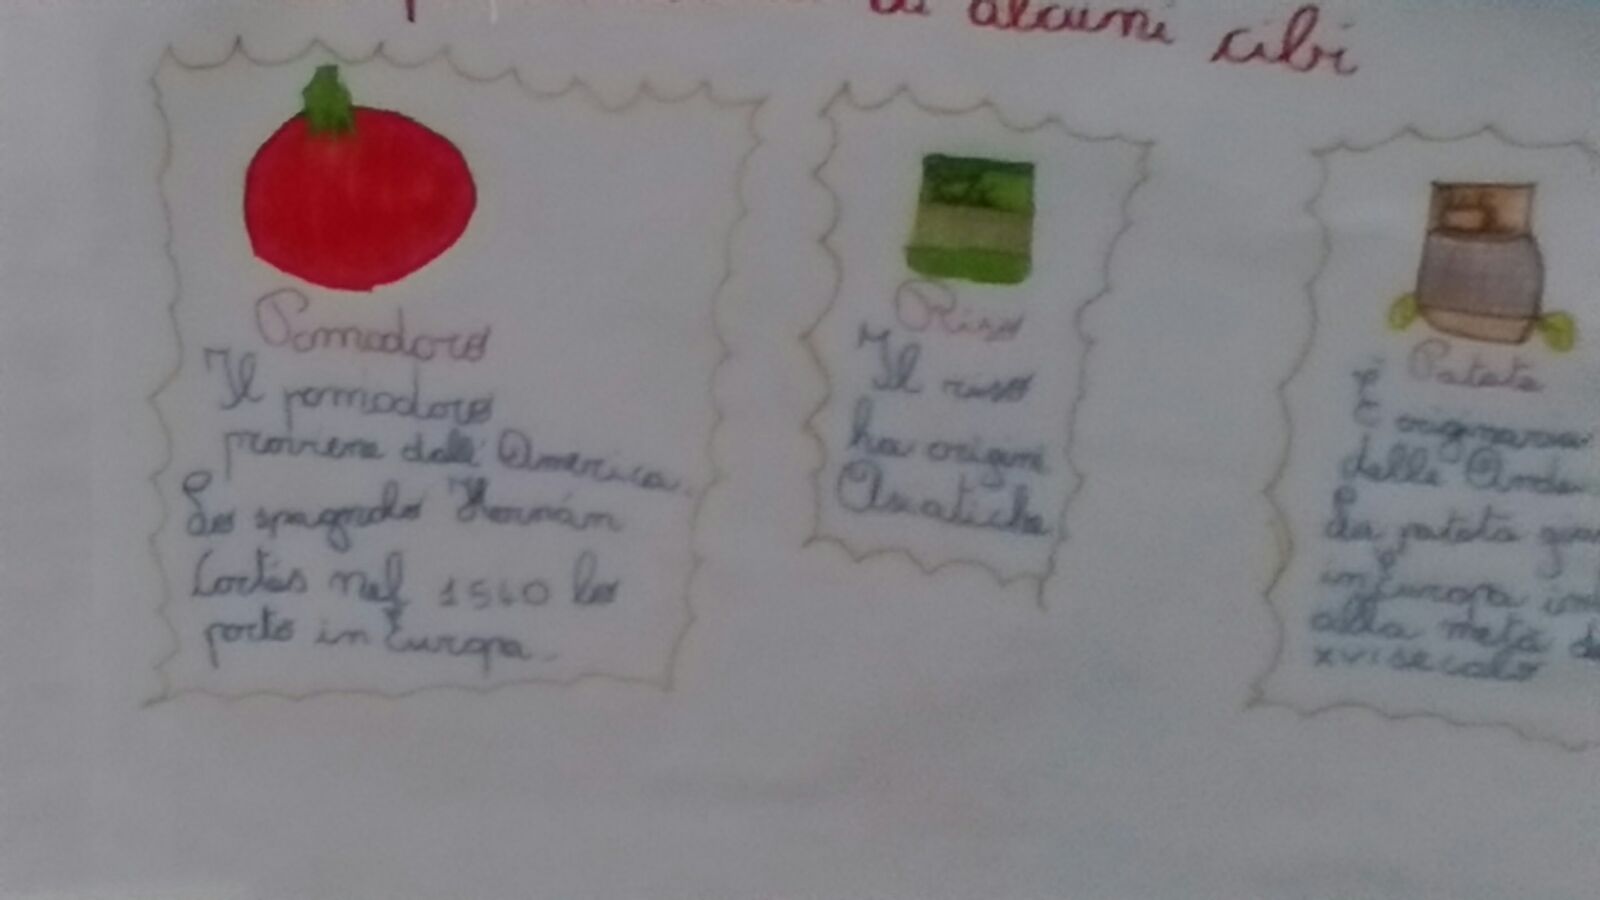 di alcuni cibi
Pomodoro
Il pomodoro
proviene dall'America.
Lo spagnolo Hernán
Cortés nel 1540 lo
portò in Europa.
Riso
Il riso
ha origini
Asiatiche
Patata
È originaria
delle Ande.
La patata
in Europa
alla metà
XVI secolo